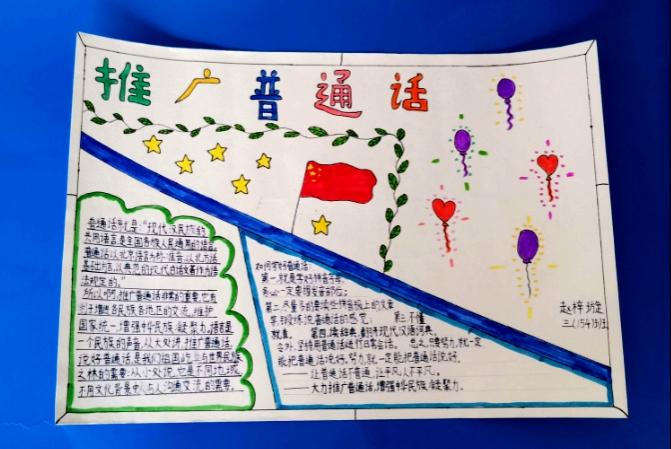 推广普通话
普通话就是:"现代汉民族的
共同语言是全国各族人民通用的语言。
普通话以北京语音为标准音,以北方话
基础方言,以典范的现代白话文著作为语
法规定的。"
所以啊,推广普通话非常的重要,它有
利于增进各民族各地区的交流,维护
国家统一,增强中华民族凝聚力。语言是
一个民族的声音,从大处讲,推广普通话、
说好普通话是我们祖国屹立与世界民族
之林的需要;从小处说,它是不同地域、
不同文化背景中人与人沟通交流的需要。
如何学好普通话:
第一,就是学好拼音字母,
第二,尽量多的要读些拼音报上的文章
第三不懂
就查。第四,读辞典,翻开现代汉语词典。
另外,坚持用普通话进行日常会话。总之,只要努力,就一定
能把普通话说好,努力,就一定能把普通话说好。
——让普通话不普通,让平凡人不平凡。
——大力推广普通话,增强中华民族凝聚力。
三(154)班